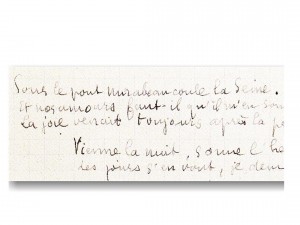 Sous le pont mirabeau coule la Seine.
Et nos amours faut-il qu'il m'en sou
La joie venait toujours après la pe
Vienne la nuit, sonne l'he
des jours s'en vont, je dem